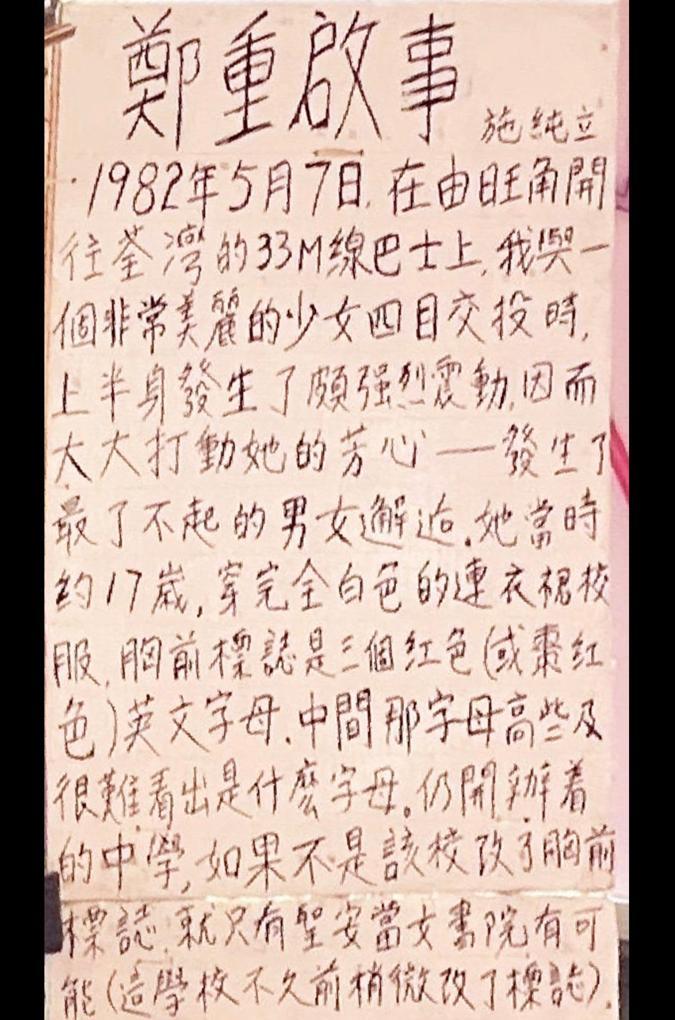 鄭重啟事
施純立
1982年5月7日,在由旺角開
往荃灣的33M線巴士上,我與一
個非常美麗的少女四目交投時,
上半身發生了頗强烈震動,因而
大大打動她的芳心——發生了
最了不起的男女邂逅。她當時
約17歲,穿完全白色的連衣裙校
服,胸前標誌是三個红色(或棗红
色)英文字母,中間那字母高些及
很難看出是什麽字母。仍開辦着
的中學,如果不是該校改了胸前
標誌,就只有聖安當女書院有可
能(這學校不久前稍微改了標誌)。